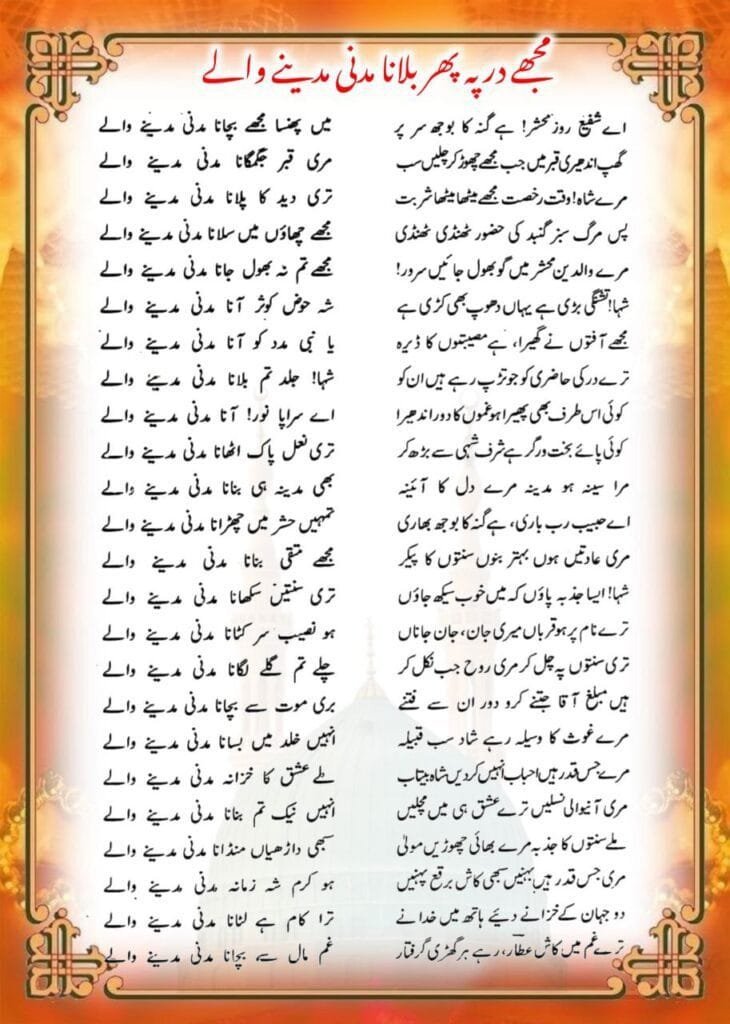 مجھے در پہ پھر بلانا مدنی مدینے والے
اے شفیعِ روزِ محشر! ہے گنہ کا بوجھ سر پر میں پھنسا مجھے بچانا مدنی مدینے والے
گھپ اندھیری قبر میں جب مجھے چھوڑ کر چلیں سب مری قبر جگمگانا مدنی مدینے والے
مرے شاہ! وقت رخصت مجھے میٹھا میٹھا شربت تری دید کا پلانا مدنی مدینے والے
پس مرگ سبز گنبد کی حضور ٹھنڈی ٹھنڈی مجھے چھاؤں میں سلانا مدنی مدینے والے
مرے والدین محشر میں گو بھول جائیں سرور! مجھے تم نہ بھول جانا مدنی مدینے والے
شہا! تشنگی بڑی ہے یہاں دھوپ بھی کڑی ہے شہ حوض کوثر آنا مدنی مدینے والے
مجھے آفتوں نے گھیرا، ہے مصیبتوں کا ڈیرہ یا نبی مدد کو آنا مدنی مدینے والے
ترے در کی حاضری کو جو تڑپ رہے ہیں ان کو شہا! جلد تم بلانا مدنی مدینے والے
کوئی اس طرف بھی پھیرا ہو غموں کا دور اندھیرا اے سراپا نور! آنا مدنی مدینے والے
کوئی پائے بخت ور گر ہے شرف شہی سے بڑھ کر تری نعل پاک اٹھانا مدنی مدینے والے
مرا سینہ ہو مدینہ مرے دل کا آئینہ بھی مدینہ ہی بنانا مدنی مدینے والے
اے حبیب رب باری، ہے گنہ کا بوجھ بھاری تمہیں حشر میں چھڑانا مدنی مدینے والے
مری عادتیں ہوں بہتر بنوں سنتوں کا پیکر مجھے متقی بنانا مدنی مدینے والے
شہا! ایسا جذبہ پاؤں کہ میں خوب سیکھ جاؤں تری سنتیں سکھانا مدنی مدینے والے
ترے نام پر ہو قرباں میری جان، جان جاناں ہو نصیب سر کٹانا مدنی مدینے والے
تری سنتوں پہ چل کر مری روح جب نکل کر چلے تم گلے لگانا مدنی مدینے والے
ہیں مبلغ آقا جتنے کرو دور ان سے فتنے بری موت سے بچانا مدنی مدینے والے
مرے غوث کا وسیلہ رہے شاد سب قبیلہ انہیں خلد میں بسانا مدنی مدینے والے
مرے جس قدر ہیں احباب انہیں کر دیں شاہ بیتاب ملے عشق کا خزانہ مدنی مدینے والے
مری آنیوالی نسلیں ترے عشق ہی میں مچلیں انہیں نیک تم بنانا مدنی مدینے والے
ملے سنتوں کا جذبہ مرے بھائی چھوڑیں مولیٰ سبھی داڑھیاں منڈانا مدنی مدینے والے
مری جس قدر ہیں بہنیں سبھی کاش برقع پہنیں ہو کرم شہ زمانہ مدنی مدینے والے
دو جہان کے خزانے دیئے ہاتھ میں خدا نے ترا کام ہے لٹانا مدنی مدینے والے
ترے غم میں کاش عطار، رہے ہر گھڑی گرفتار غم مال سے بچانا مدنی مدینے والے